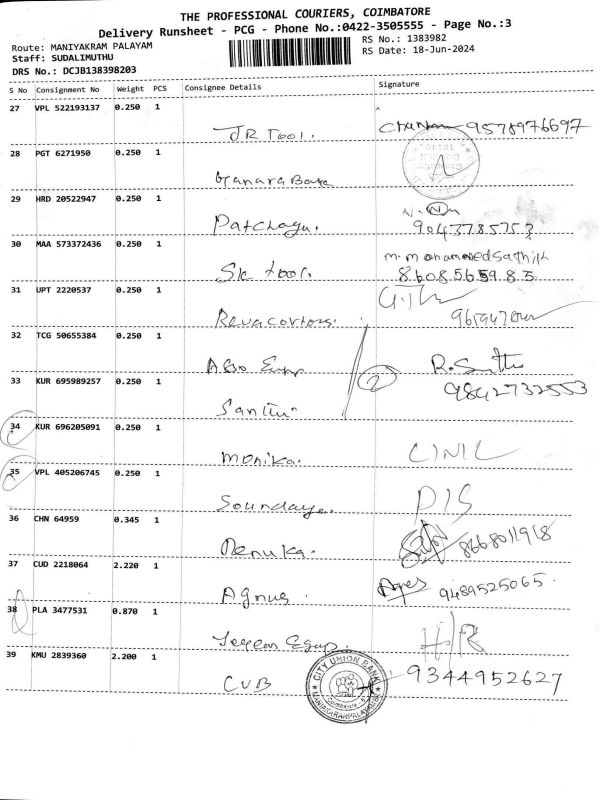 THE PROFESSIONAL COURIERS, COIMBATORE
Delivery Runsheet - PCG - Phone No.:0422-3505555 - Page No.:3
Route: MANIYAKRAM PALAYAM
RS No.: 1383982
Staff: SUDALIMUTHU
RS Date: 18-Jun-2024
DRS No.: DCJB138398203
S No Consignment No Weight PCS Consignee Details Signature
27 VPL 522193137 0.250 1
JR Tool. 9578976697
28 PGT 6271950 0.250 1
29 HRD 20522947 0.250 1
9043785753
30 MAA 573372436 0.250 1
m. mohammedsathik
SK tool. 8608565985
31 UPT 2220537 0.250 1
32 TCG 50655384 0.250 1
2
33 KUR 695989257 0.250 1
9842732553
34 KUR 696205091 0.250 1
monika.
35 VPL 405206745 0.250 1
36 CHN 64959 0.345 1
Renuka. 8668011918
37 CUD 2218064 2.220 1
Agnus 9489525065.
38 PLA 3477531 0.870 1
39 KMU 2839360 2.200 1
CUB CITY UNION BANK 9344952627